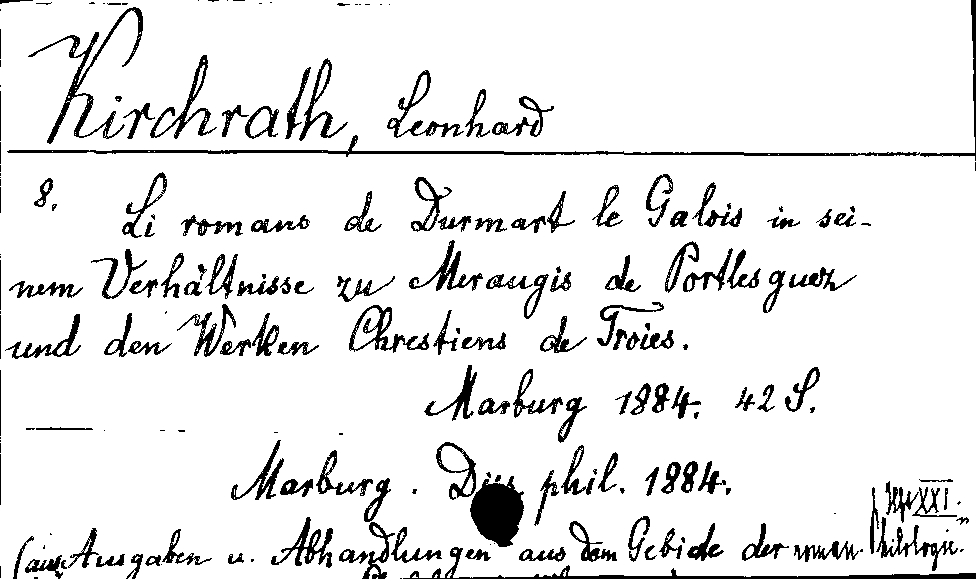 Kirchrath, Leonhard
8. Li romans de Durmart le Galois in sei-
nem Verhältnisse zu Meraugis de Portlesguez
und den Werken Chrestiens de Troies.
Marburg 1884. 42 S.
Marburg. Diss. phil. 1884.
XXI.
(aus Ausgaben u. Abhandlungen aus dem Gebiete der roman. Philologie."